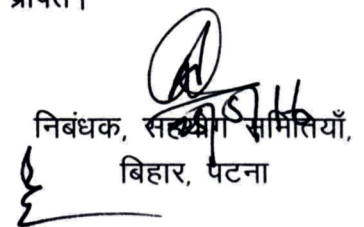 निबंधक, सहयोग समितियाँ,
बिहार, पटना